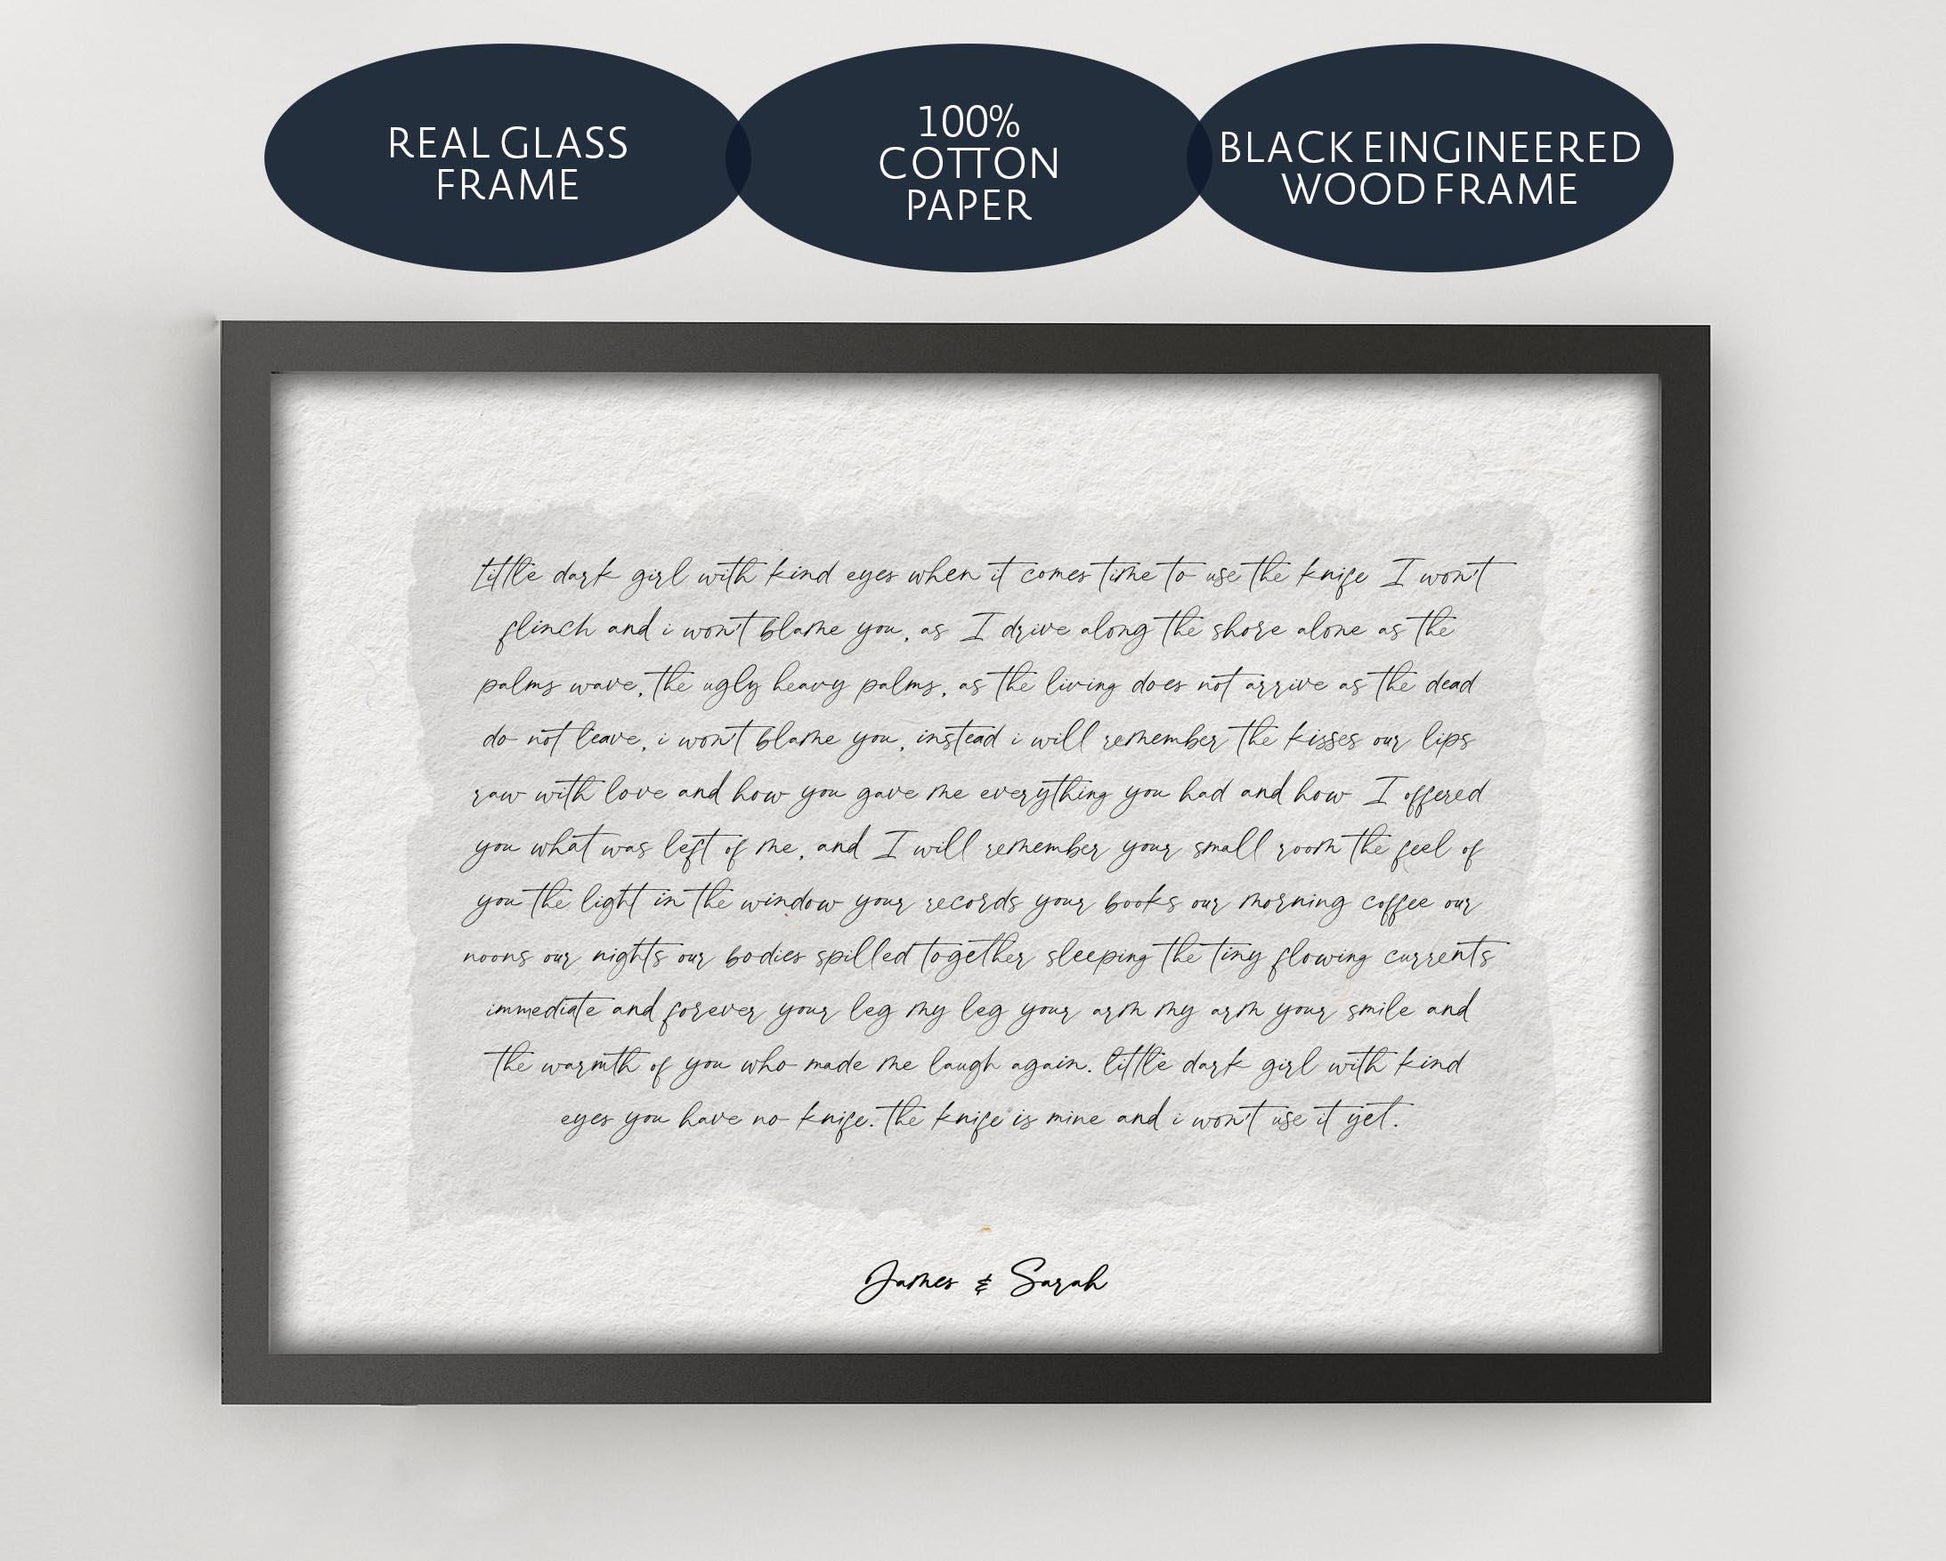 REAL GLASS
FRAME
100%
COTTON
PAPER
BLACK EINGINEERED
WOOD FRAME
Little dark girl with kind eyes when it comes time to use the knife I won't
flinch and i won't blame you, as I drive along the shore alone as the
palms wave, the ugly heavy palms, as the living does not arrive as the dead
do not leave, i won't blame you, instead i will remember the kisses our lips
raw with love and how you gave me everything you had and how I offered
you what was left of me, and I will remember your small room the feel of
you the light in the window your records your books our morning coffee our
noons our nights our bodies spilled together sleeping the tiny flowing currents
immediate and forever your leg my leg your arm my arm your smile and
the warmth of you who made me laugh again. little dark girl with kind
eyes you have no knife. the knife is mine and i won't use it yet.
James & Sarah